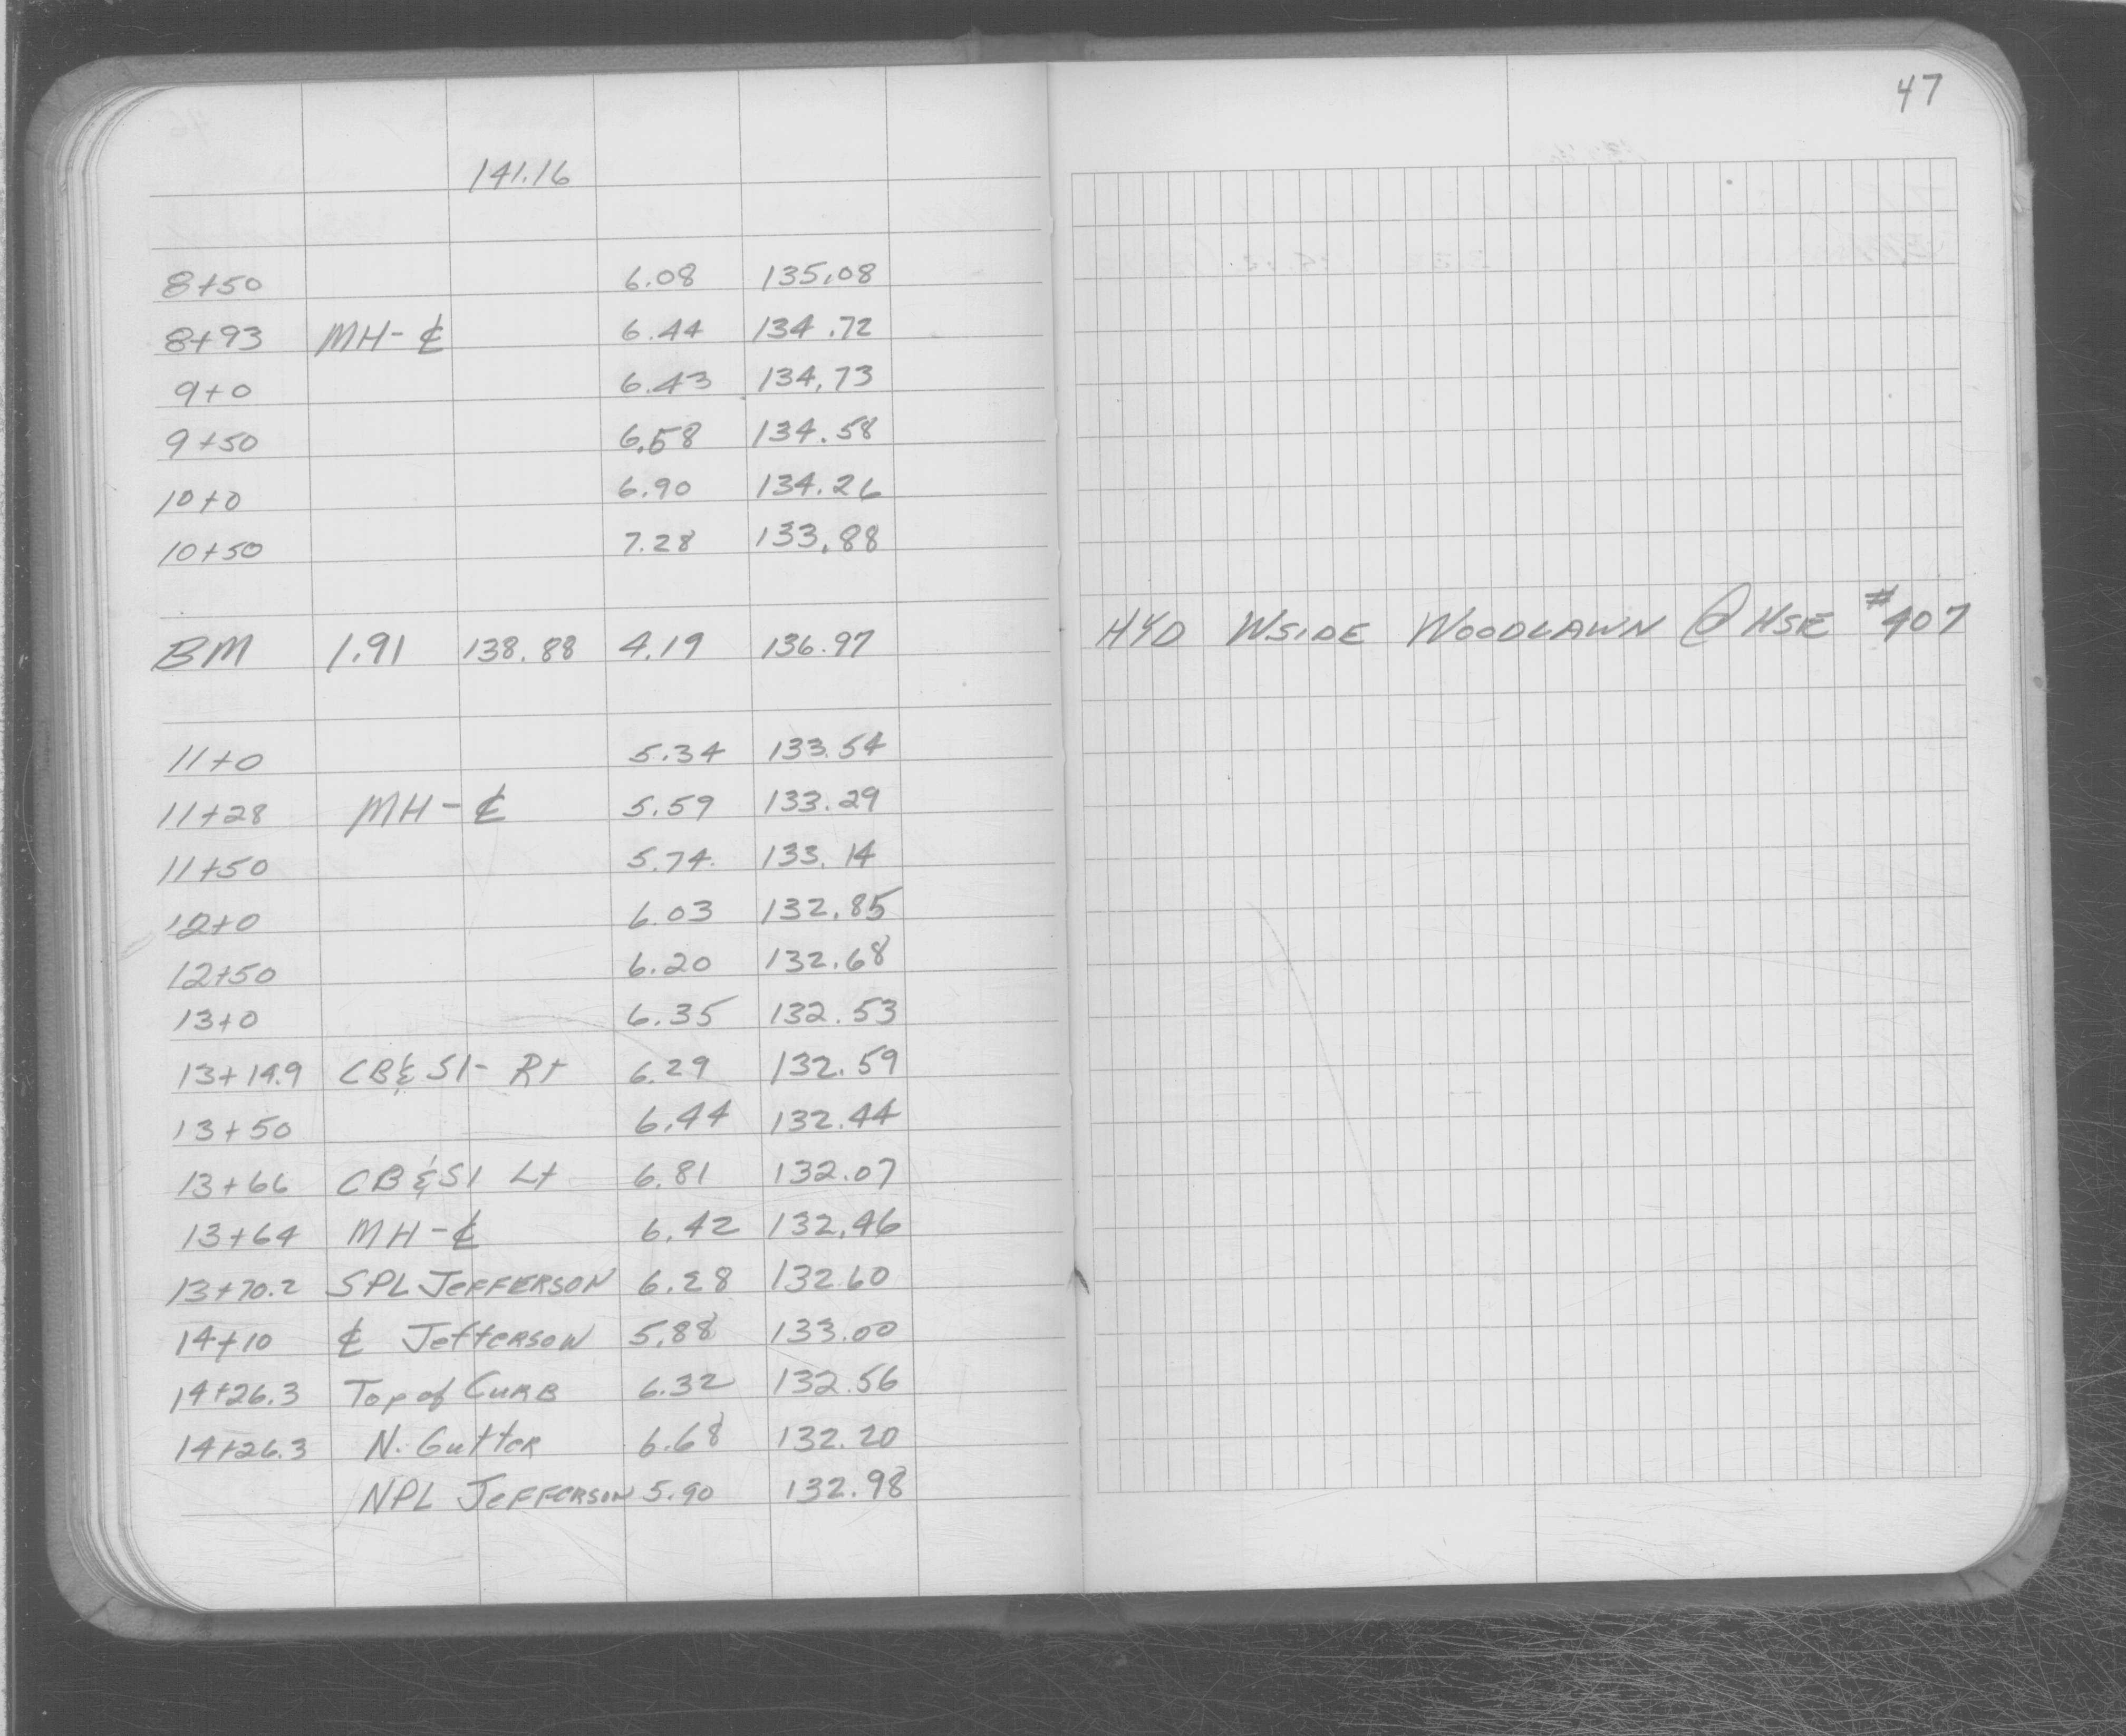 141.16
8+50 6.08 135.08
8+93 MH-℄ 6.44 134.72
9+0 6.43 134.73
9+50 6.58 134.58
10+0 6.90 134.26
10+50 7.28 133.88
BM 1.91 138.88 4.19 136.97
11+0 5.34 133.54
11+28 MH-℄ 5.59 133.29
11+50 5.74 133.14
12+0 6.03 132.85
12+50 6.20 132.68
13+0 6.35 132.53
13+14.9 CB & SI- Rt 6.29 132.59
13+50 6.44 132.44
13+66 CB & SI Lt 6.81 132.07
13+64 MH-℄ 6.42 132.46
13+70.2 SPL JEFFERSON 6.28 132.60
14+10 ℄ Jefferson 5.88 133.00
14+26.3 Top of CURB 6.32 132.56
14+26.3 N. Gutter 6.68 132.20
NPL JEFFERSON 5.90 132.98
47
HYD W SIDE WOODLAWN @ HSE #407